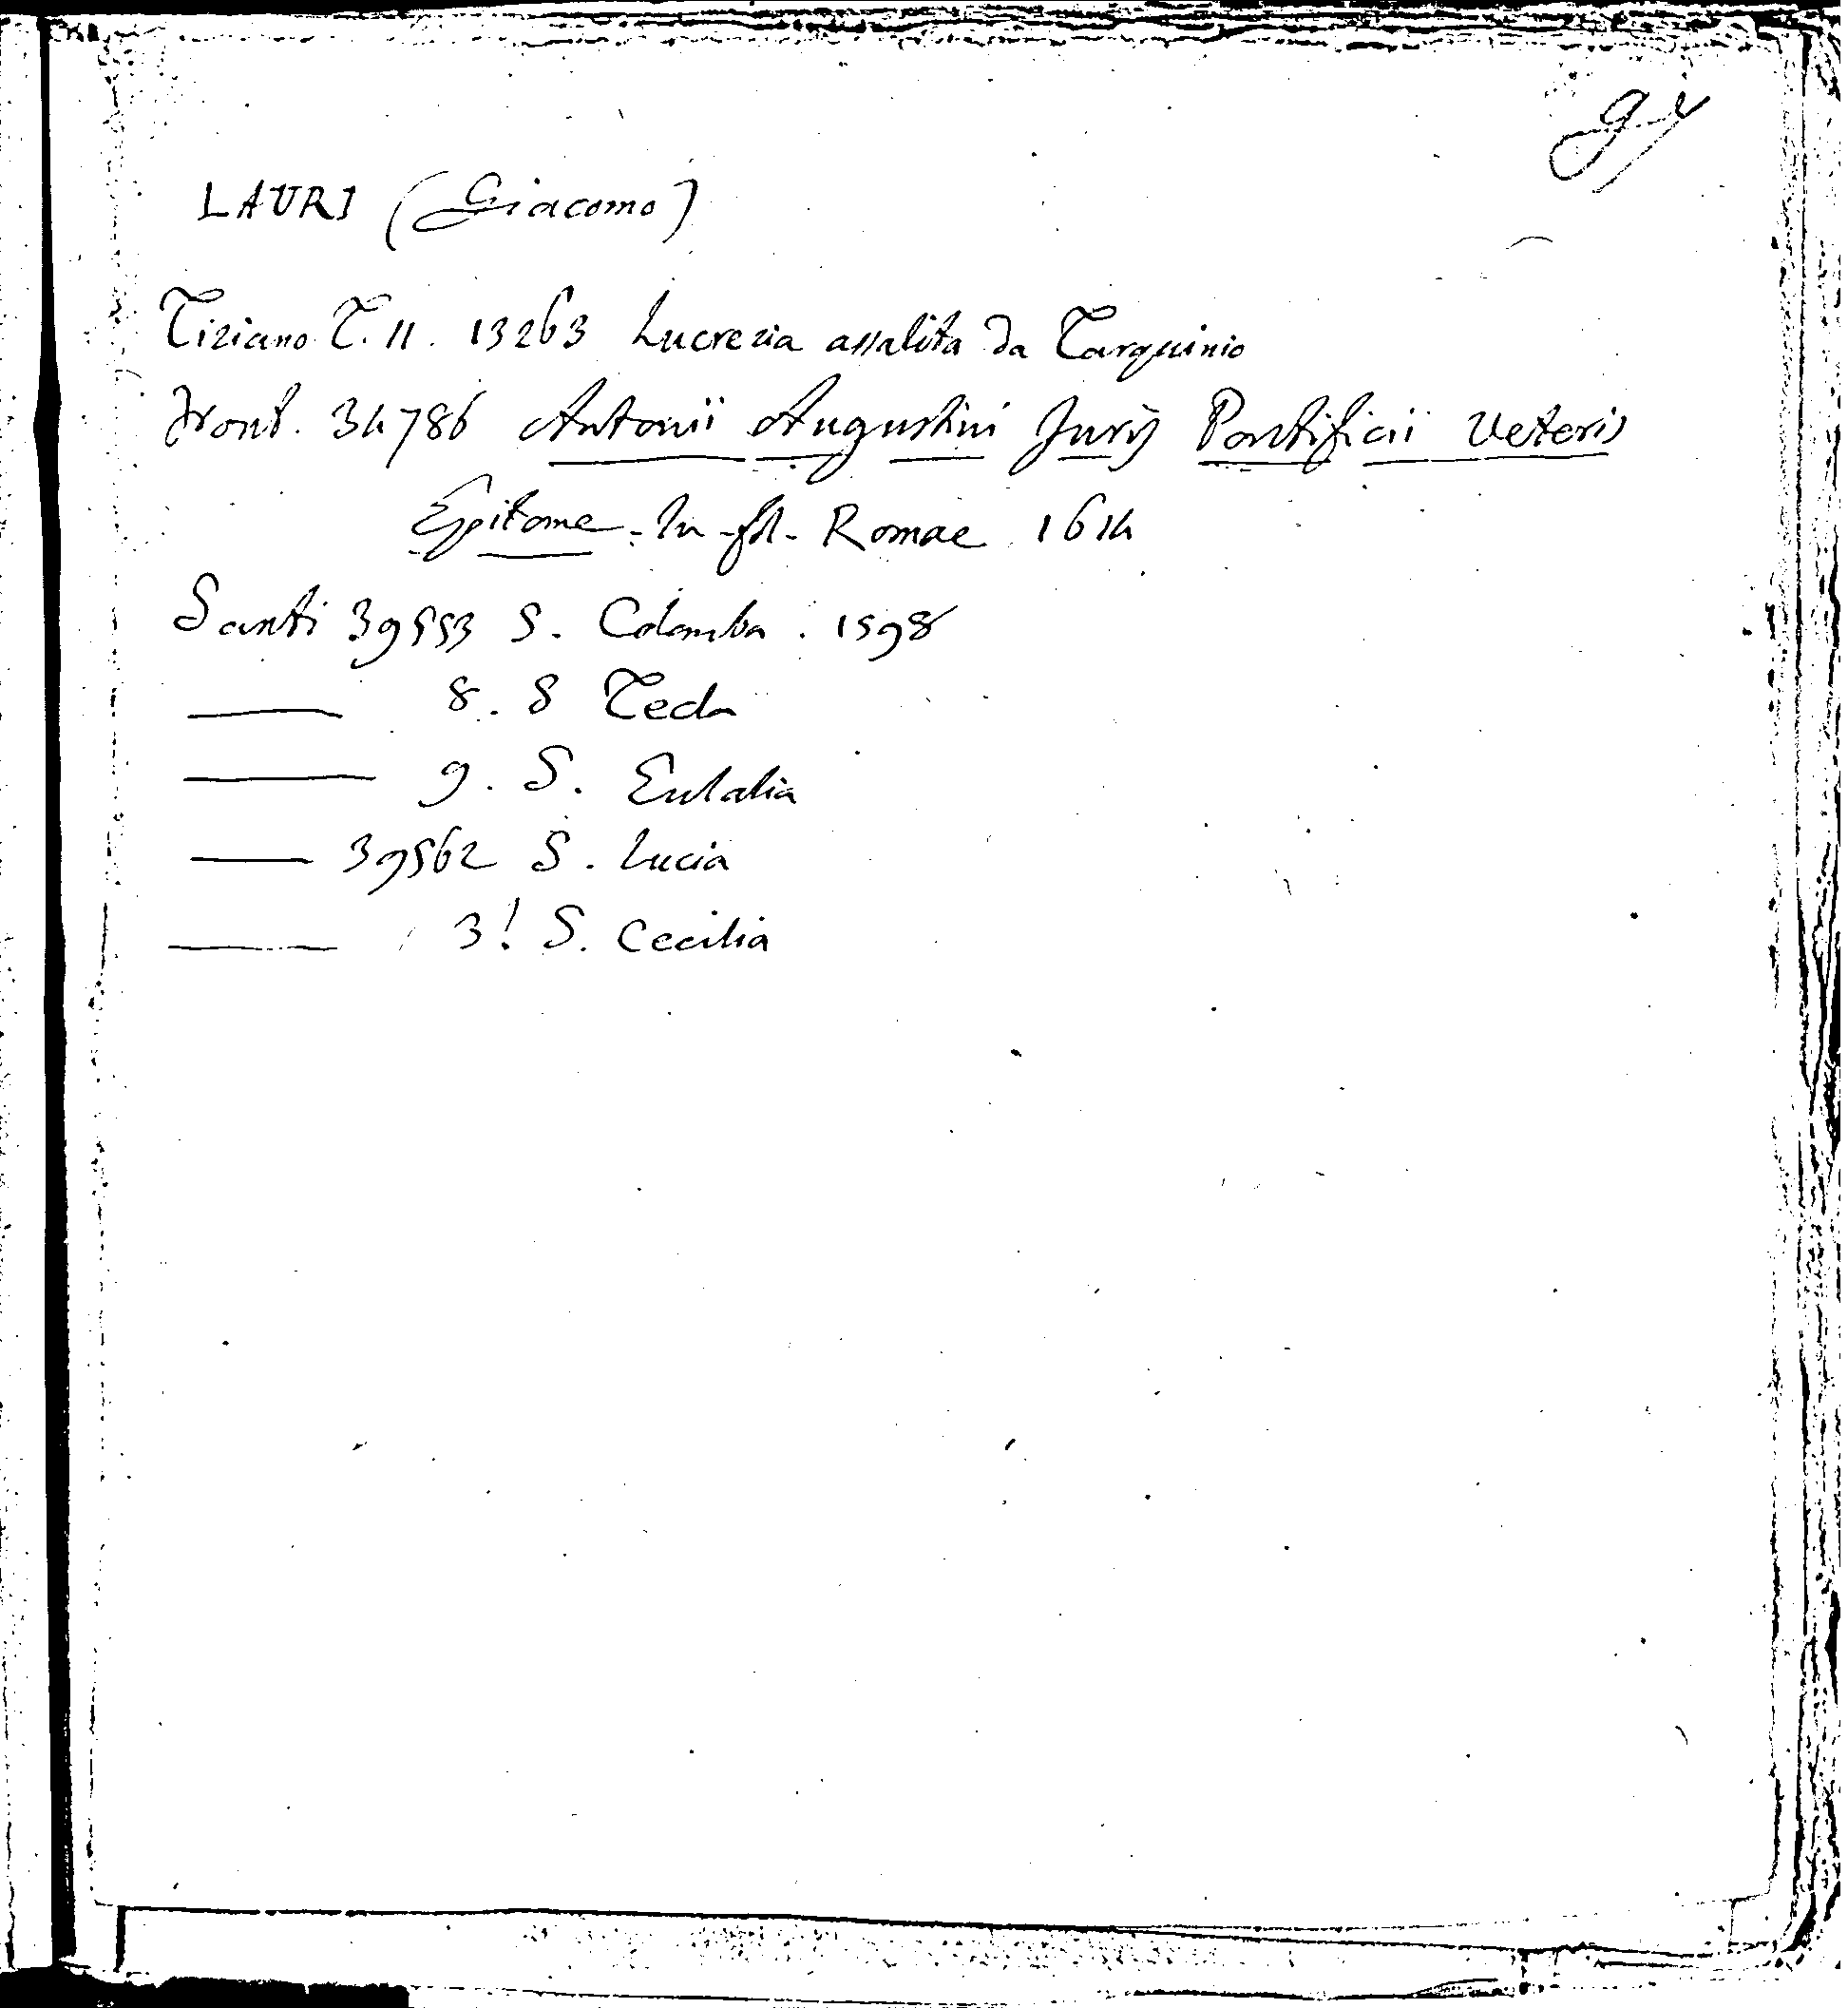 LAURI (Giacomo)
Tiziano T. 11. 13263 Lucrezia assalita da Tarquinio
Front. 34786 Antonii Augustini Juris Pontificii Veteris
Epitome - In-fol. Romae 1614
Santi 39553 S. Colomba. 1598
—— 8. S Tecla
—— 9. S. Eulalia
—— 39562 S. Lucia
—— 3! S. Cecilia